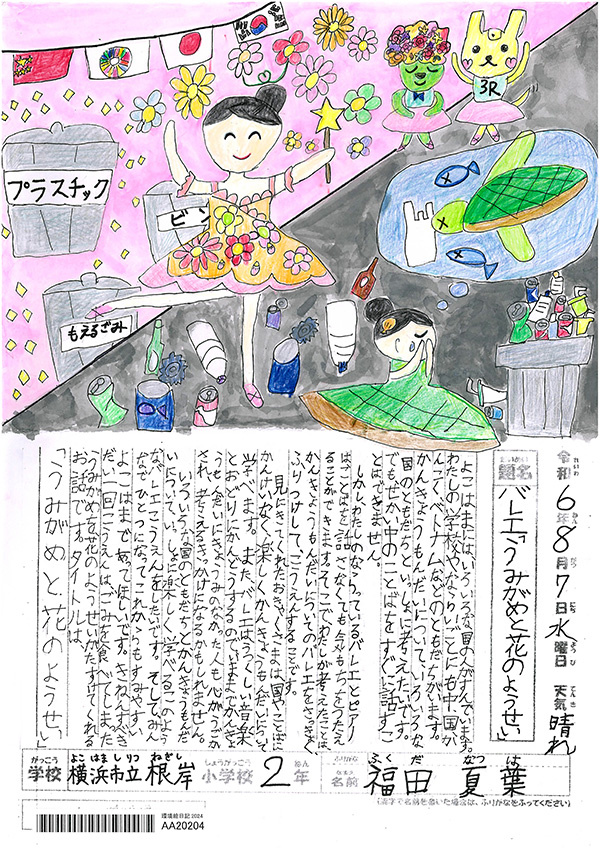 3R
プラスチック
ビン
もえるごみ
令和6年8月7日水曜日 天気 晴れ
題名
バレエ「うみがめと花のようせい」
よこはまにはいろいろな国の人がすんでいます。
わたしの学校やならいごとにも中国、か
んこく、ベトナムなどのともだちがいます。
かんきょうもんだいについて、いろいろな
国のともだちといっしょに考えたいです。
でもせかい中のことばをすぐに話すこ
とはできません。
しかし、わたしのならっているバレエとピアノ
はことばを話さなくても気もちをつたえ
ることができます。そこでわたしが考えたことは、
かんきょうもんだいについてのバレエをさっきょく、
ふりつけして、こうえんすることです。
見にきてくれたおきゃくさまは国やことばに
かんけいなく楽しくかんきょうもんだいについて
学べます。また、バレエはうつくしい音楽
とおどりにかんどうするのでいままでかんきょ
うもんだいにきょうみのなかった人も心がうごか
され、考えるきっかけになるかもしれません。
いろいろな国のともだちとかんきょうもんだ
いについていっしょに楽しく学べるこのよう
なバレエこうえんをしたいです。そしてみん
なでひとつになってこれからもすみやすい
よこはまであってほしいです。きねんすべき
だい一回こうえんは、ごみを食べてしまった
うみがめを花のようせいがたすけてくれる
お話です。タイトルは、
「うみがめと花のようせい」
学校 横浜市立根岸小学校 2年
名前 福田 夏葉
(漢字で名前を書いた場合は、ふりがなをふってください)
環境絵日記2024
AA20204